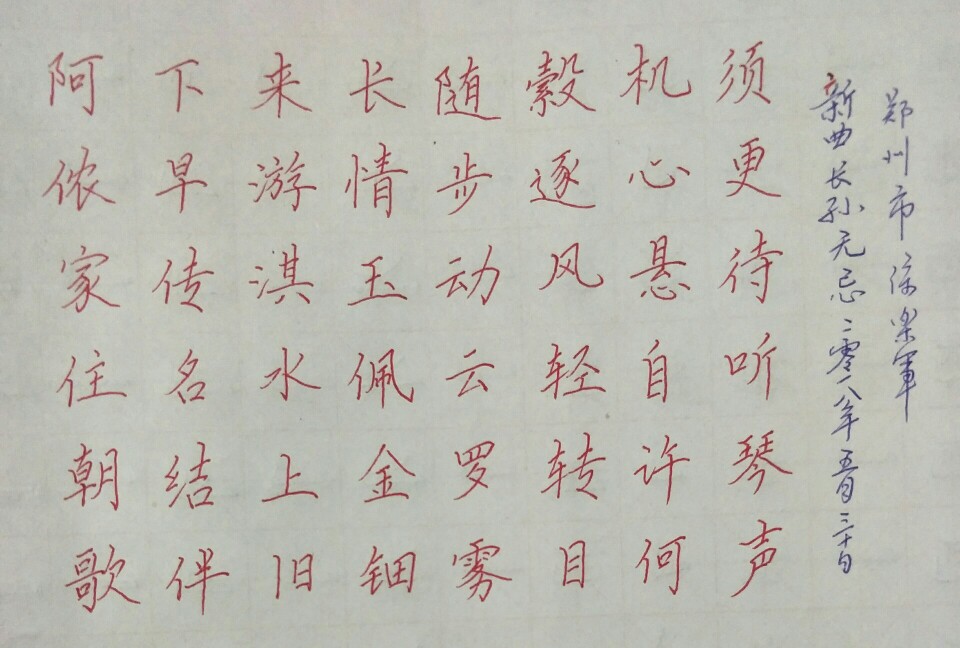 阿侬家住朝歌
下早传名结伴
来游淇水上旧
长情玉佩金钿
随步动云罗雾
縠逐风轻转目
机心悬自许何
须更待听琴声
新曲长孙无忌二零一八年五月三十日
郑州市軍